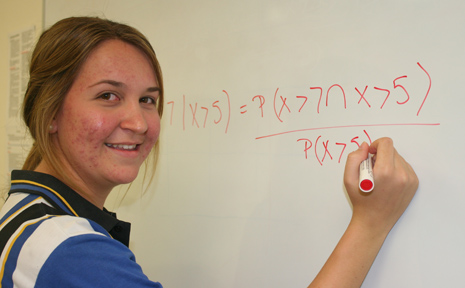 7|X>5) = P(X>7∩X>5)
P(X>5)